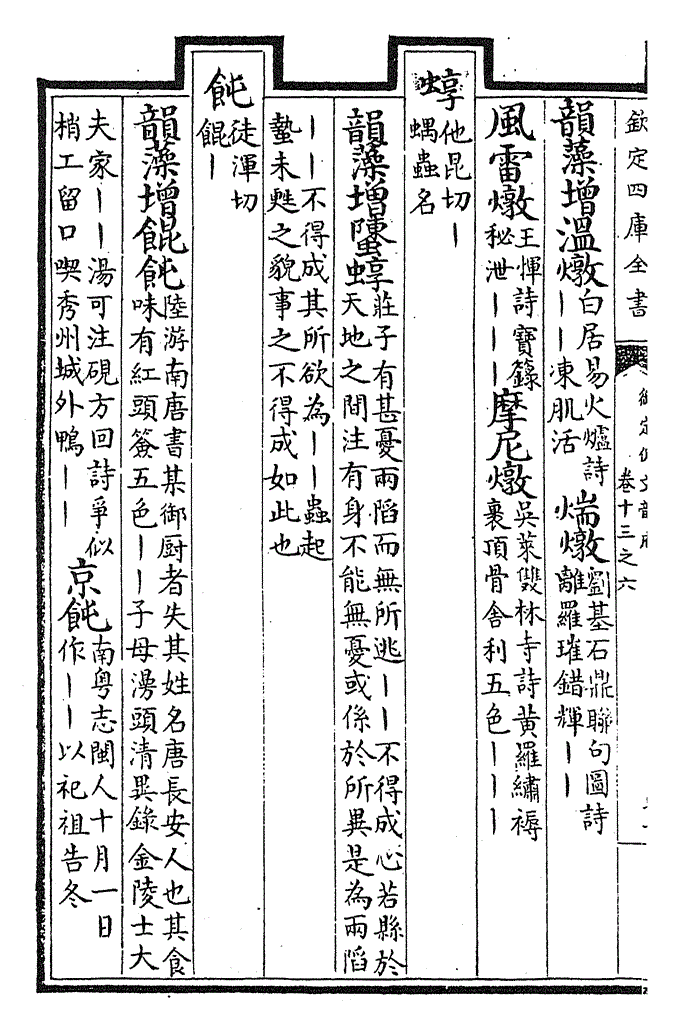 欽定四庫全書
御定佩文韻府
卷十三之六
韻藻增溫燉白居易火爐詩｜｜凍肌活 煓燉劉基石鼎聯句圖詩離羅璀錯輝｜｜
風雷燉王惲詩寶籙秘泄｜｜｜摩尼燉吳萊雙林寺詩黃羅繡褥裹頂骨舍利五色｜｜｜
蜳他昆切｜蝺蟲名
韻藻增䗖蜳莊子有甚憂兩陷而無所逃｜｜不得成心若縣於天地之間注有身不能無憂或係於所異是為兩陷
｜｜不得成其所欲為｜｜蟲起蟄未甦之貌事之不得成如此也
飩徒渾切餛｜
韻藻增餛飩陸游南唐書某御厨者失其姓名唐長安人也其食味有紅頭簽五色｜｜子母㬿頭清異錄金陵士大
夫家｜｜湯可注硯方回詩爭似梢工留口喫秀州城外鴨｜｜ 京飩南粵志閩人十月一日作｜｜以祀祖告冬